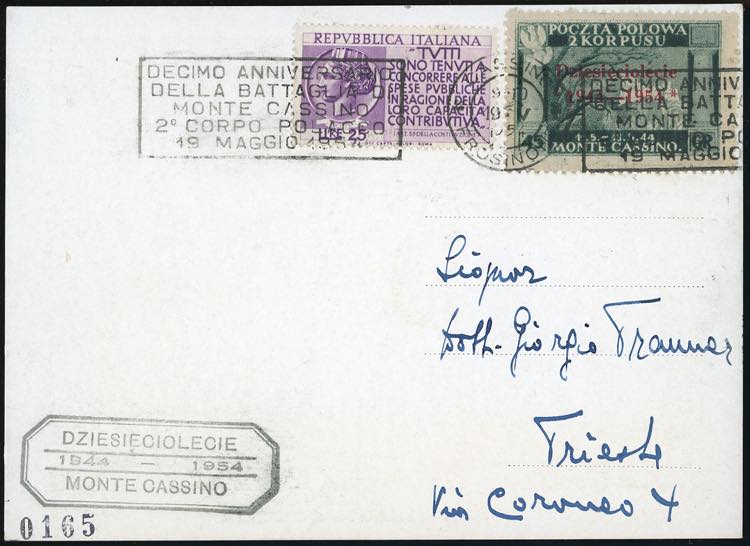 REPVBBLICA ITALIANA
"TVTTI
NO TENVTI A
CONCORRERE ALLE
SPESE PVBBLICHE
IN RAGIONE DELLA
LORO CAPACITÀ
CONTRIBVTIVA„
LIRE 25
POCZTA POLOWA
2 KORPUSU
Dziesięciolecie
1944-1954
45 GR.
.5.-18.5.44
MONTE CASSINO.
DECIMO ANNIVERSARIO
DELLA BATTAGLIA DI
MONTE CASSINO
2° CORPO POLACCO
19 MAGGIO 1954
CASSIN
ROSINO
DECIMO ANNIV
BATTA
MONTE CA
PO
19 MAGGIO
Signor
Dott. Giorgio
Trieste
Via Coroneo 4
DZIESIĘCIOLECIE
1944 - 1954
MONTE CASSINO
0165